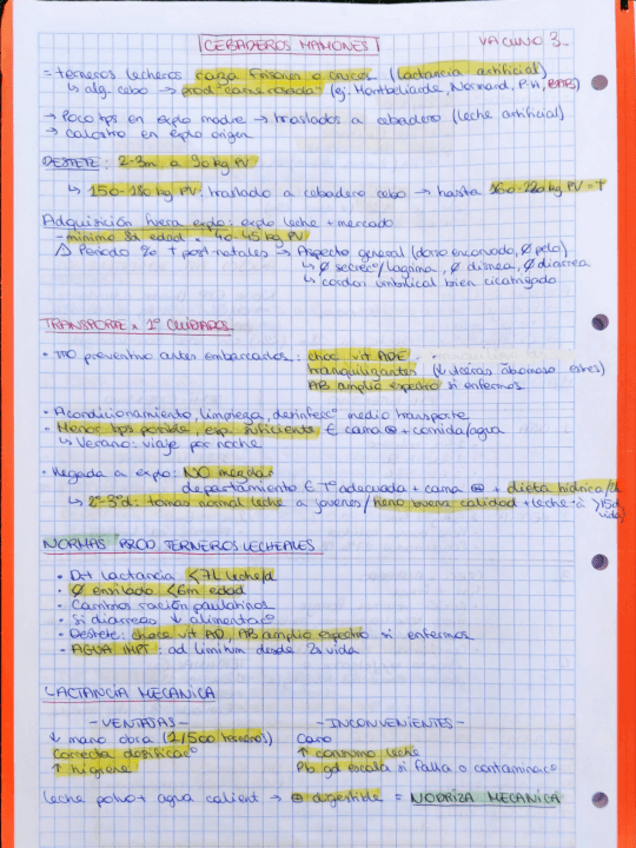 CEBADEROS MAMONES
VACUNO 3
= terneros lecheros raza frisones o cruces (lactancia artificial)
↳ alg. cebo → prod "carne rosada" (ej. Montbeliarde, Normand, P-H, )
→ Poco tps en explo madre → traslados a cebadero (leche artificial)
→ calostro en explo origen
DESTETE: 2-3m a 90kg PV
↳ 150-180 kg PV: traslado a cebadero cebo → hasta PV = †
Adquisición fuera explo: explo leche + mercado
- mínimo 8d edad 40-45 kg PV
⚠ Periodo % † post-natales → Aspecto general (dorso encorvado, Ø pelo)
↳ Ø secrec°/lagrima, Ø disnea, Ø diarrea
↳ cordon umbilical bien cicatrizado
TRANSPORTE 1º CUIDADOS
• TTO preventivo antes embarcados: choc vit ADE
tranquilizantes (↓ úlceras abomaso estres)
AB amplio espectro si enfermos
• Acondicionamiento, limpieza, desinfecc° medio transporte
• Menor tps posible, esp. suficiente € cama ⊕ + comida/agua
↳ Verano: viaje por noche
• Llegada a explo: NO mezclar
departamento € Tº adecuada + cama ⊕ + dieta hídrica
↳ 2º-3ºd: tomas normal leche a jovenes / heno buena calidad + leche → à >15d
vida
NORMAS PROD TERNEROS LECHALES
• Dt lactancia <7L leche/d
• Ø ensilado <6m edad
• Cambios ración paulatinos
• Si diarreas ↓ alimentac°
• Destete: choc vit AD, AB amplio espectro si enfermos
• AGUA IMPT: ad limitum desde 2s vida
LACTANCIA MECANICA
- VENTAJAS -
↓ mano obra (1/500 terneros)
Correcta dosificac°
↑ higiene
- INCONVENIENTES -
Caro
↑ consumo leche
Pb gd escala si falla o contaminac°
leche polvo + agua calient → ⊕ digestible = NODRIZA MECANICA